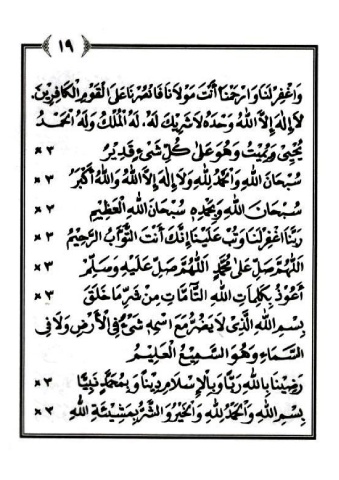 ١٩
وَاغْفِرْ لَنَا وَارْحَمْنَا أَنْتَ مَوْلَانَا فَانْصُرْنَا عَلَى الْقَوْمِ الْكَافِرِيْنَ.
لَا إِلٰهَ إِلَّا اللهُ وَحْدَهُ لَا شَرِيْكَ لَهُ، لَهُ الْمُلْكُ وَلَهُ الْحَمْدُ
يُحْيِي وَيُمِيْتُ وَهُوَ عَلَى كُلِّ شَيْءٍ قَدِيْرٌ ×٣
سُبْحَانَ اللهِ وَالْحَمْدُ لِلّٰهِ وَلَا إِلٰهَ إِلَّا اللهُ وَاللهُ أَكْبَرُ ×٣
سُبْحَانَ اللهِ وَبِحَمْدِهِ سُبْحَانَ اللهِ الْعَظِيْمِ ×٢
رَبَّنَا اغْفِرْ لَنَا وَتُبْ عَلَيْنَا إِنَّكَ أَنْتَ التَّوَّابُ الرَّحِيْمُ ×٣
اَللّٰهُمَّ صَلِّ عَلَى مُحَمَّدٍ اَللّٰهُمَّ صَلِّ عَلَيْهِ وَسَلِّمْ ×٣
أَعُوْذُ بِكَلِمَاتِ اللهِ التَّآمَّاتِ مِنْ شَرِّ مَا خَلَقَ ×٣
بِسْمِ اللهِ الَّذِيْ لَا يَضُرُّ مَعَ اسْمِهِ شَيْءٌ فِي الْأَرْضِ وَلَا فِي
السَّمَاءِ وَهُوَ السَّمِيْعُ الْعَلِيْمُ
رَضِيْنَا بِاللهِ رَبًّا وَبِالْإِسْلَامِ دِيْنًا وَبِمُحَمَّدٍ نَبِيًّا ×٣
بِسْمِ اللهِ وَالْحَمْدُ لِلّٰهِ وَالْخَيْرُ وَالشَّرُّ بِمَشِيْئَةِ اللهِ ×٣